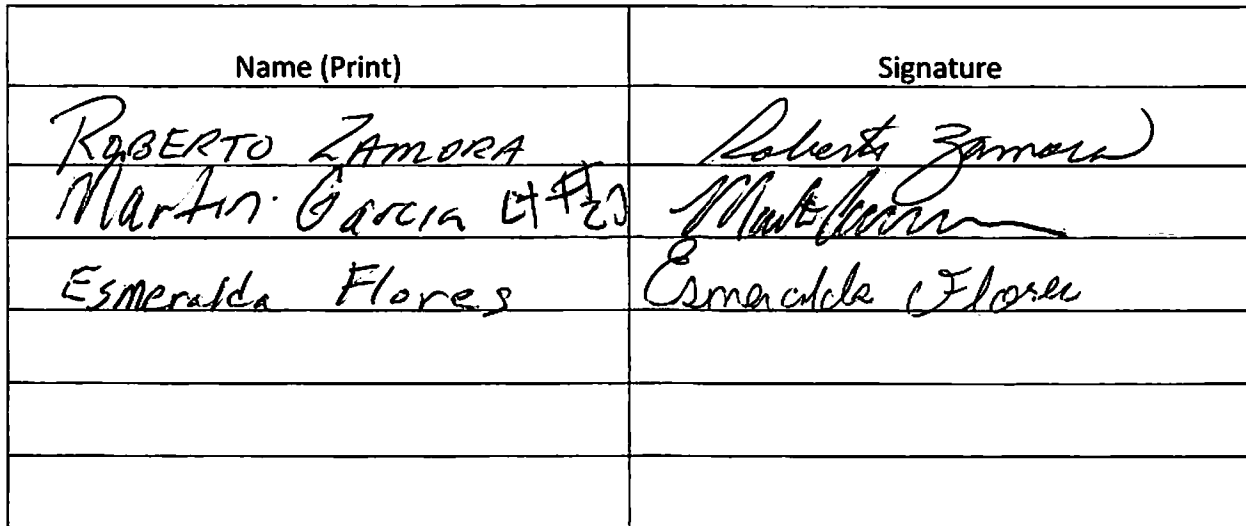 Name (Print) Signature
ROBERTO ZAMORA Roberto Zamora
Martin Garcia
Esmeralda Flores Esmeralda Flores